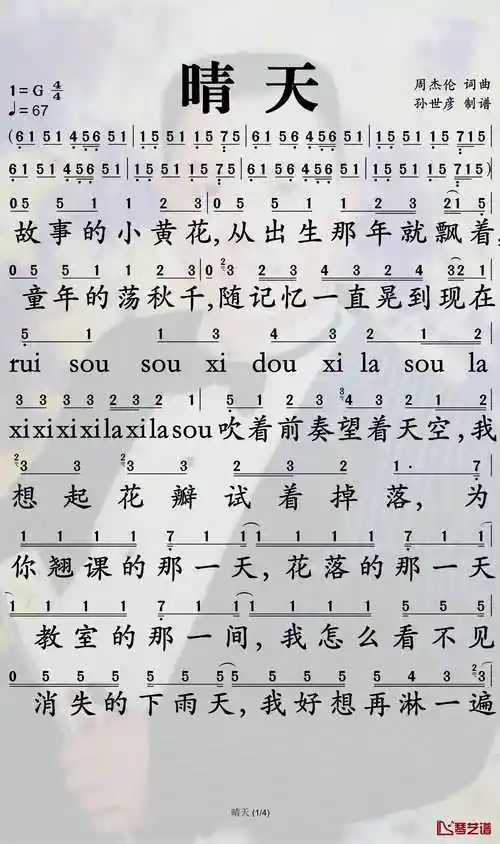 晴天
1=G 4/4
♩=67
周杰伦 词曲
孙世彦 制谱
(6151456 51|1551 1575|6151456 51|1551 15715|
6151456 51|1551 1575|6151456 51|1551 15715)|
05 5 1 1 2 3|05 5 1 1 2 3 21 5
故事的小黄花,从出生那年就飘着,
05 5 1 1 2 3|0 3 2 3 4 3 2 4 321
童年的荡秋千,随记忆一直晃到现在
5 1 1 3 4 3 2 1 2
rui sou sou xi dou xi la sou la
3 3 3 3 2 3 2 1|5 1 2 3 4 3 2 1 2
xixixixilaxilasou吹着前奏望着天空,我
3 3 2 3 2 3 1· 7
想起花瓣试着掉落,为
1 1 1 1 7 1 1 1 1 1 1 7 1 1
你翘课的那一天,花落的那一天
1 1 1 1 7 1 1 1 1 1 5 5 5
教室的那一间,我怎么看不见
0 5 5 5 5 5 5 5 5 5 5 4 3 3
消失的下雨天,我好想再淋一遍
晴天 (1/4)
琴艺谱